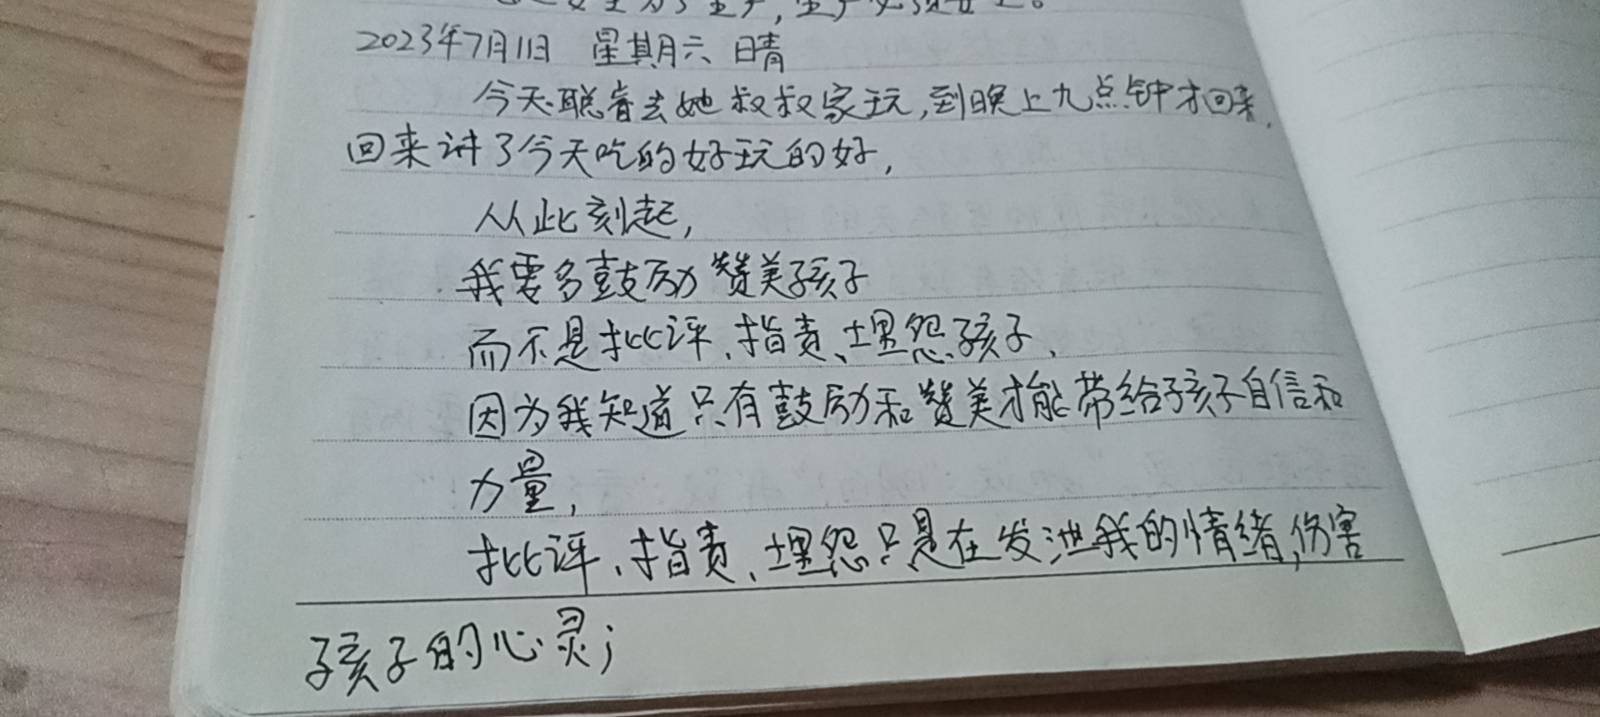 2023年7月11日 星期六 晴
今天聪睿去她叔叔家玩,到晚上九点钟才回来,
回来讲了今天吃的好玩的好,
从此刻起,
我要多鼓励赞美孩子
而不是批评、指责、埋怨孩子、
因为我知道只有鼓励和赞美才能带给孩子自信和
力量,
批评、指责、埋怨只是在发泄我的情绪,伤害
孩子的心灵;